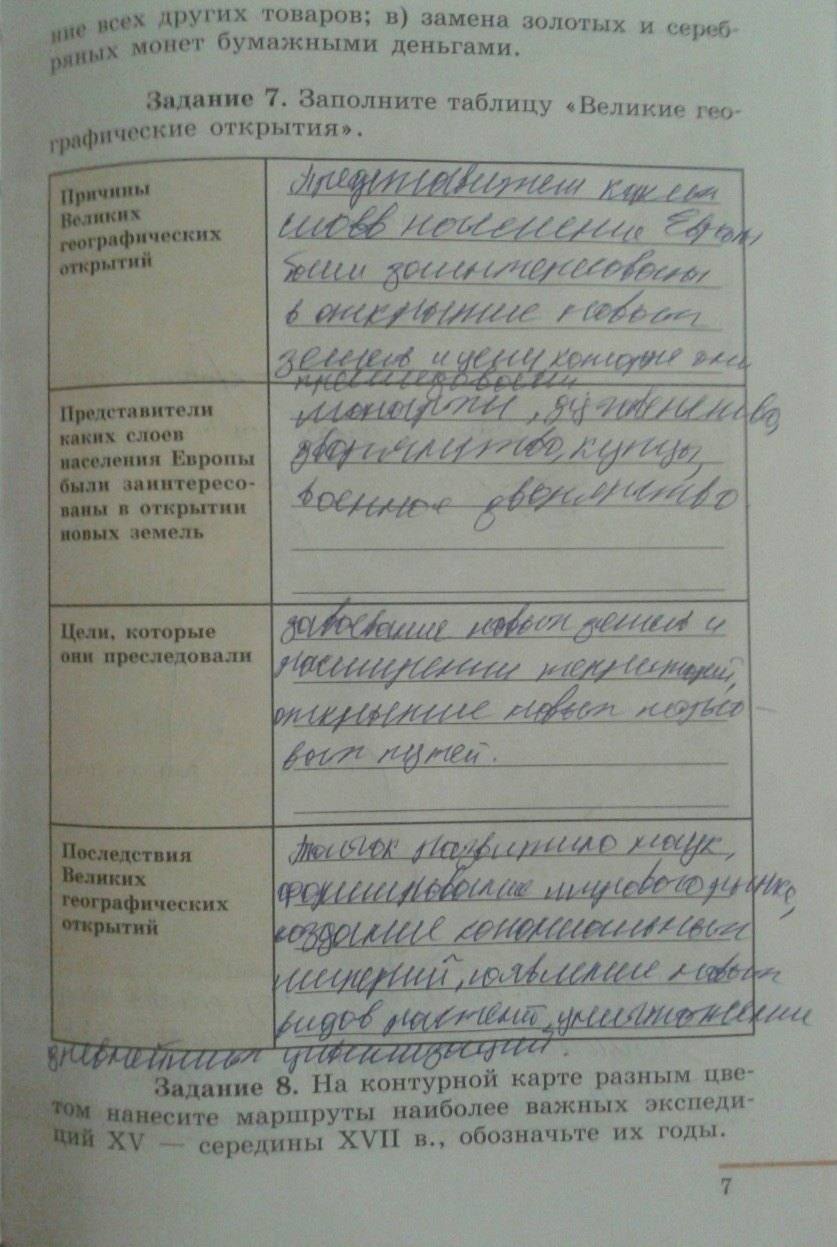 ние всех других товаров; в) замена золотых и сереб-
ряных монет бумажными деньгами.
Задание 7. Заполните таблицу «Великие гео-
графические открытия».
Причины
Великих
географических
открытий
Представители каких
слоёв населения Европы
были заинтересованы
в открытие новых
земель и цели которые они
преследовали
Представители
каких слоев
населения Европы
были заинтересо-
ваны в открытии
новых земель
монархи, духовенство,
дворянство, купцы,
военное дворянство
Цели, которые
они преследовали
завоевание новых земель и
расширении территорий,
открытие новых торго
вых путей.
Последствия
Великих
географических
открытий
толчок развитию наук,
формирование мирового рынка,
создание колониальных
империй, появление новых
видов растений, уничтожении
древнейших цивилизаций.
Задание 8. На контурной карте разным цве-
том нанесите маршруты наиболее важных экспеди-
ций XV — середины XVII в., обозначьте их годы.
7